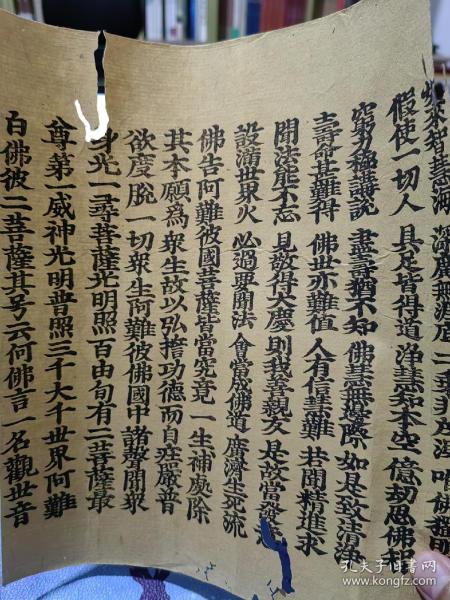 來智慧海 深廣無涯底 二乘非所測 唯佛獨明
假使一切人 具足皆得道 淨慧知本空 億劫思佛智
窮力極講說 盡壽猶不知 佛慧無邊際 如是致清淨
壽命甚難得 佛世亦難值 人有信慧難 若聞精進求
聞法能不忘 見敬得大慶 則我善親友 是故當發
設滿世界火 必過要聞法 會當成佛道 廣濟生死流
佛告阿難彼國菩薩皆當究竟一生補處除
其本願為衆生故以弘誓功德而自莊嚴普
欲度脫一切衆生阿難彼佛國中諸聲聞衆
身光一尋菩薩光明照百由旬有二菩薩最
尊第一威神光明普照三千大千世界阿難
白佛彼二菩薩其号云何佛言一名觀世音
孔夫子旧书网
www.kongfz.com